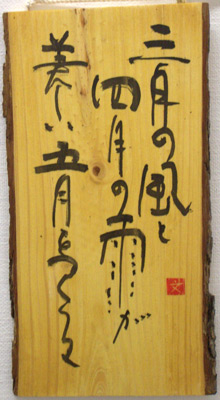 三月の風と
四月の雨が
美しい五月をつくる